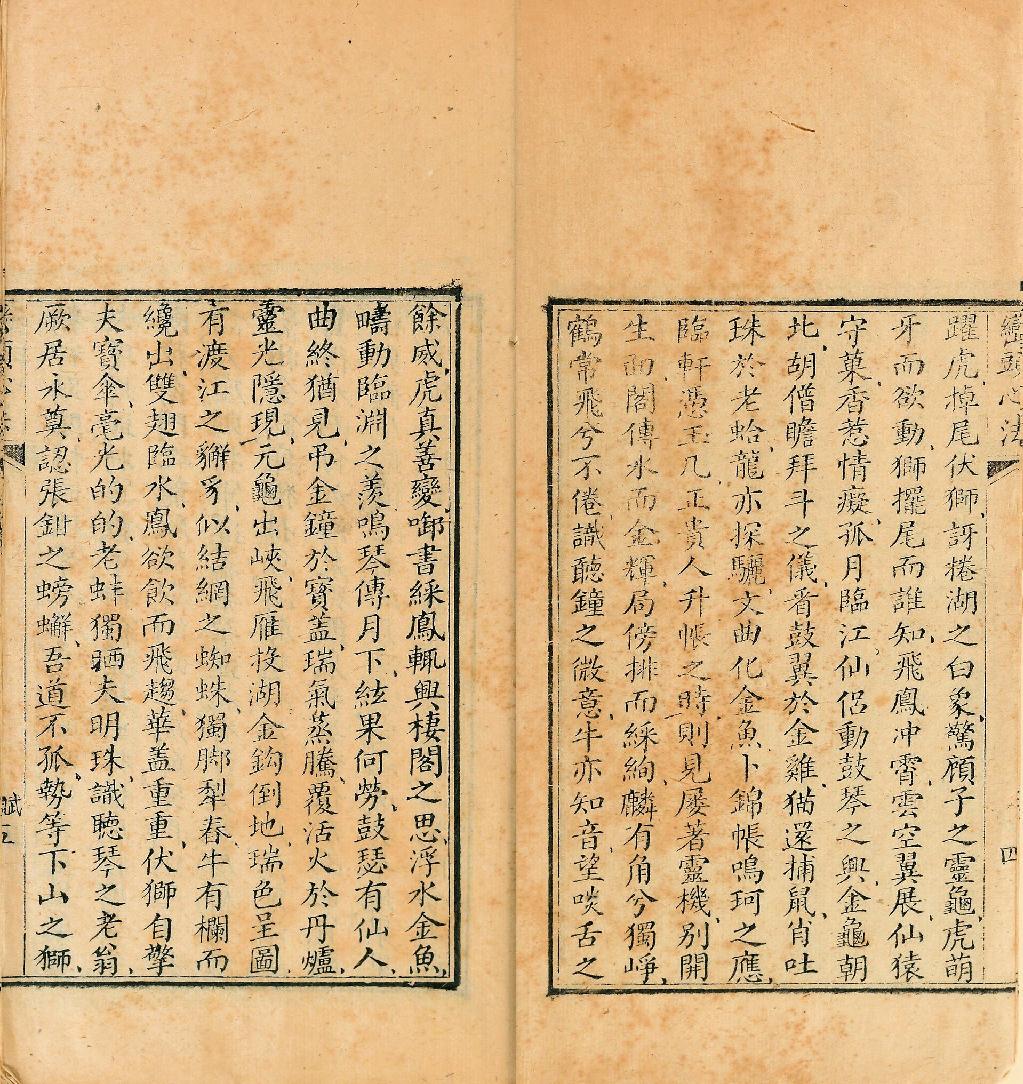 巒頭心法
躍虎掉尾伏獅訝捲湖之白象驚顧子之靈龜虎萌
牙而欲動獅擺尾而誰知飛鳳冲霄雲空翼展仙猿
守菓香惹情癡孤月臨江仙侶動鼓琴之興金龜朝
北胡僧瞻拜斗之儀看鼓翼於金雞猫還捕鼠肖吐
珠於老蛤龍亦探驪文曲化金魚卜錦帳鳴珂之應
臨軒憑玉几正貴人升帳之時則見屡著靈機別開
生面閣傳水而金輝局傍排而綵絢麟有角兮獨崢
鶴常飛兮不倦識聽鐘之微意牛亦知音望啖舌之
四
餘威虎真善變啣書綵鳳輒興棲閣之思浮水金魚
疇動臨淵之羨鳴琴傳月下絃果何勞鼓瑟有仙人
曲終猶見吊金鐘於寳盖瑞氣蒸騰覆活火於丹爐
靈光隱現元龜出峽飛雁投湖金鈎倒地瑞色呈圖
有渡江之獬豸似結網之蜘蛛獨脚犁春牛有欄而
纔出雙翅臨水鳳欲飲而飛趨華盖重重伏獅自擎
夫寶傘毫光的的老蚌獨晒夫明珠識聽琴之老翁
厥居永奠認張鉗之螃蠏吾道不孤勢等下山之獅
賦五